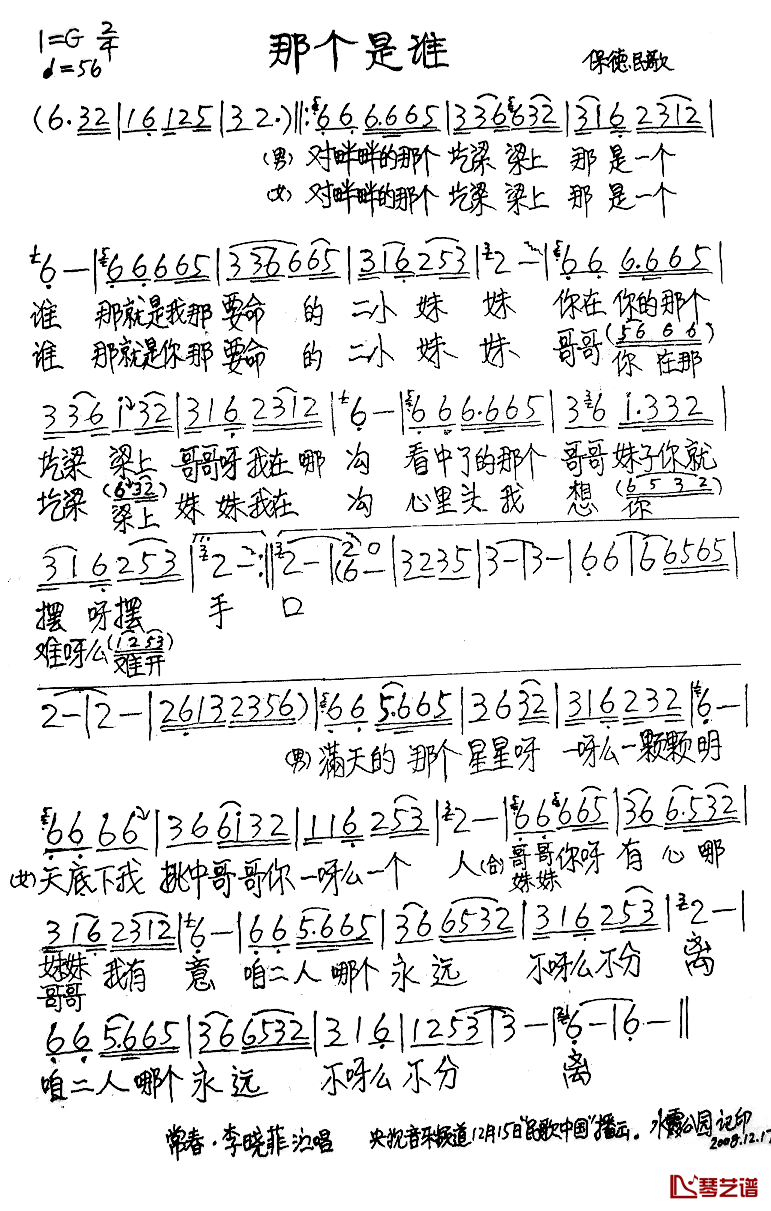 1=G 2/4 那个是谁 保德民歌
♩=56
(6·32|16125|32·)‖:66 6.665|336632|316 2312|
(男) 对畔畔的那个 圪梁 梁上 那 是一个
(女) 对畔畔的那个 圪梁 梁上 那 是一个
6-|66665|336665|316253|2-|66 6.665|
谁 那就是我那 要命 的 二小 妹 妹 你在 你的那个
谁 那就是你那 要命 的 二小 妹 妹 哥哥 (56 6 6)
你 在那
336 i32|316 2312|6-|66 6.665|36 i.332|
圪梁 梁上 哥哥呀 我在哪 沟 看中了的那个 哥哥 妹子你就
圪梁 (6i32) 妹 妹我在 沟 心里头我 想 (6 5 3 2)
梁上 你
316 253|2-:‖2-|(6- 2 0|3235|3-|3-|66|66565|
摆 呀摆 手 口
难呀么 (1253)
难开
2-|2-|2613 2356)|66 5.665|3632|316 232|6-|
(男) 满天的 那个 星星呀 一呀么一颗颗明
66 66|366i32|116 253|2-|66 665|36 6.532|
(女) 天底下我 挑中哥哥你 一呀么一个 人 (合) 哥哥你呀 有 心 哪
妹妹
316 2312|6-|66 5.665|36 6532|316 253|2-|
妹妹 我有 意 咱二人 哪个 永 远 不呀么不分 离
哥哥
66 5.665|36 6532|316|1253|3-|6-|6-‖
咱二人 哪个 永 远 不呀么 不分 离
常春·李晓菲演唱 央视音乐频道12月15日"民歌中国"播出。 水霞公园记印
2008.12.17
琴艺谱